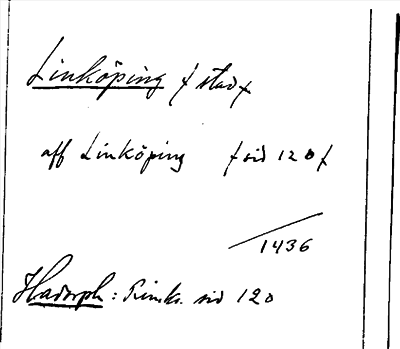 Linköping / stad /
aff Linköping / sid 120 /
/ 1436
Hadorph: Rimkr. sid 120